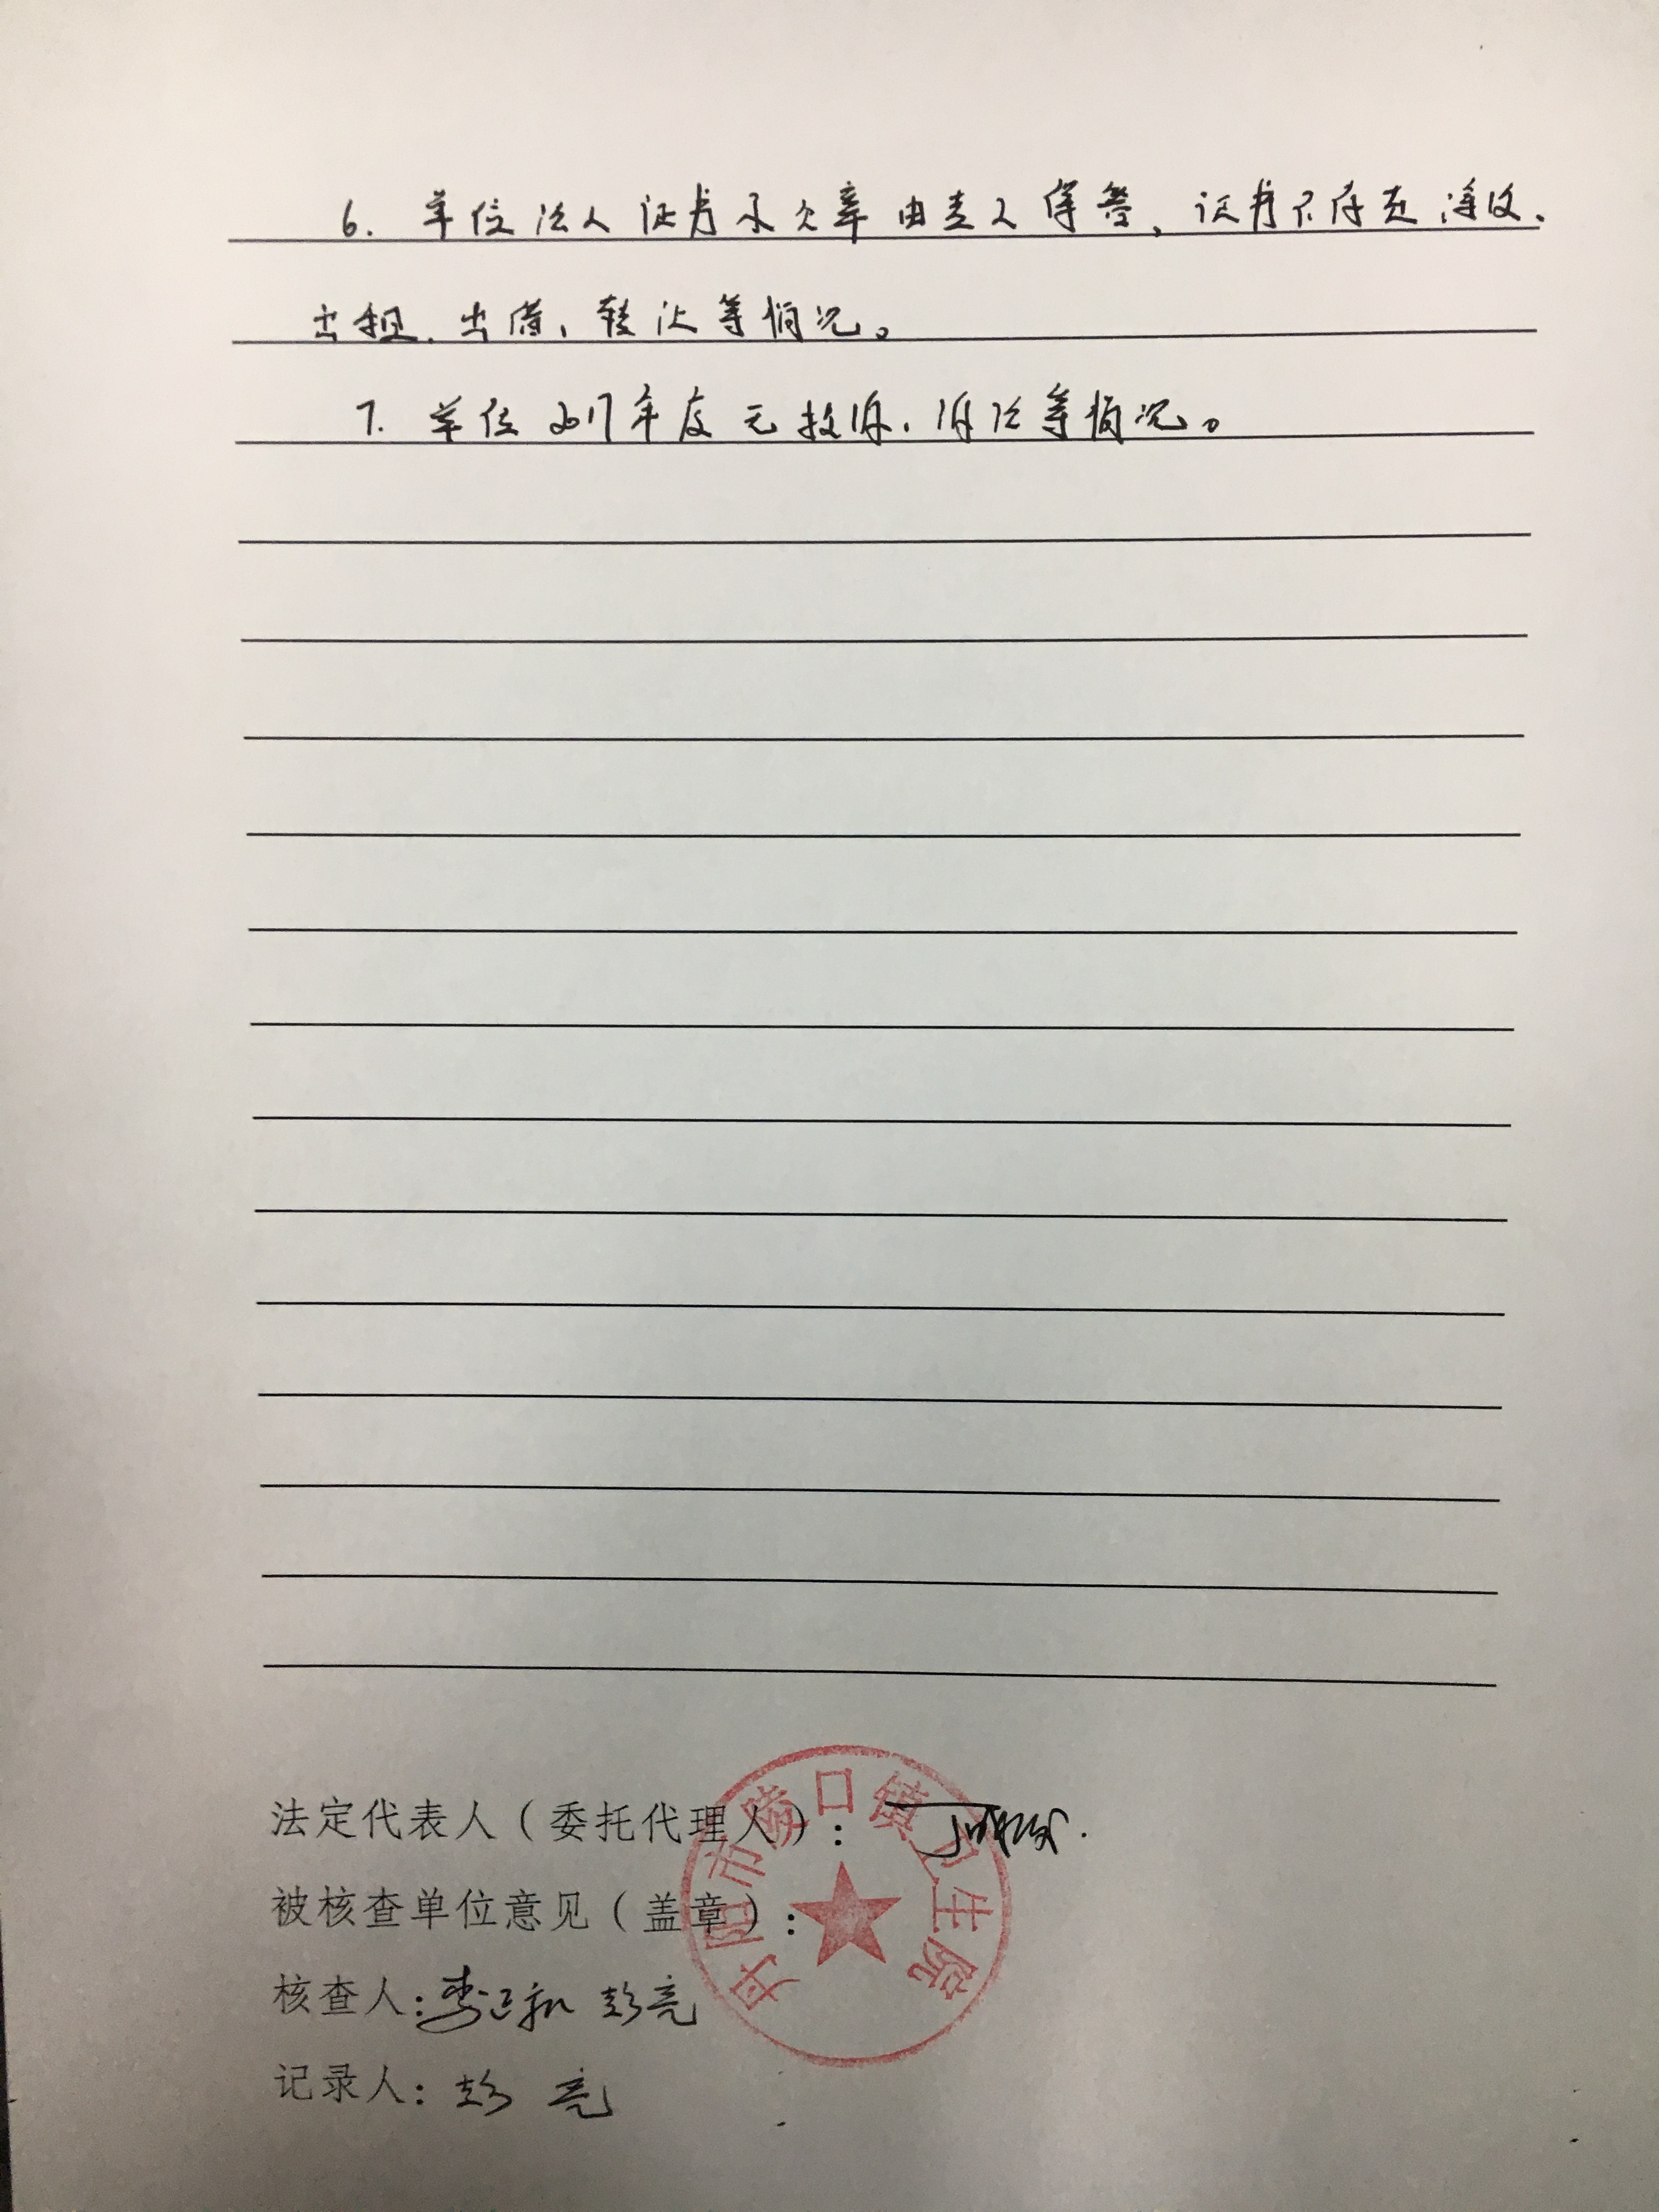 6. 单位法人证书和公章由专人保管，证书不存在涂改、
出租、出借、转让等情况。
7. 单位2017年度无投诉、诉讼等情况。
丹阳市陵口镇卫生院
法定代表人（委托代理人）：
被核查单位意见（盖章）：
核查人：李正和 彭亮
记录人：彭亮